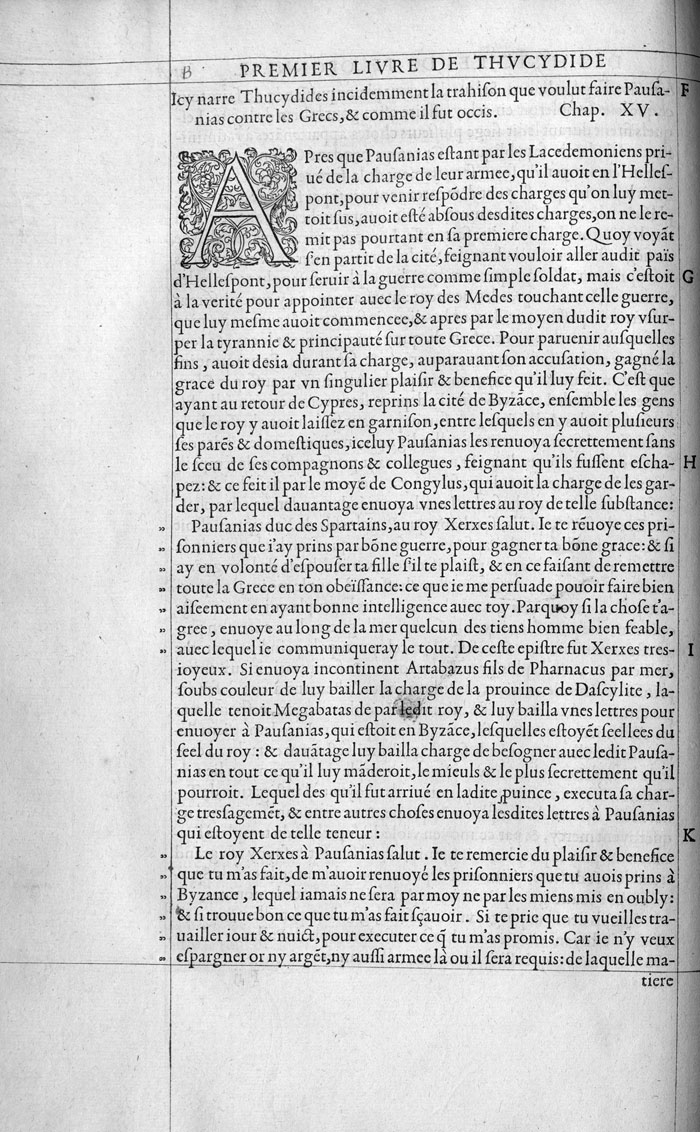 B PREMIER LIVRE DE THVCYDIDE
Icy narre Thucydides incidemment la trahiſon que voulut faire Pauſa- F
nias contre les Grecs, & comme il fut occis. Chap. XV.
APres que Pauſanias eſtant par les Lacedemoniens pri-
ué de la charge de leur armee, qu'il auoit en l'Helleſ-
pont, pour venir reſpõdre des charges qu'on luy met-
toit ſus, auoit eſté abſous desdites charges, on ne le re-
mit pas pourtant en ſa premiere charge. Quoy voyãt
ſ'en partit de la cité, feignant vouloir aller audit païs
d'Helleſpont, pour ſeruir à la guerre comme ſimple ſoldat, mais c'eſtoit G
à la verité pour appointer auec le roy des Medes touchant celle guerre,
que luy meſme auoit commencee, & apres par le moyen dudit roy vſur-
per la tyrannie & principauté ſur toute Grece. Pour paruenir auſquelles
fins, auoit deſia durant ſa charge, auparauant ſon accuſation, gagné la
grace du roy par vn ſingulier plaiſir & benefice qu'il luy feit. C'eſt que
ayant au retour de Cypres, reprins la cité de Byzãce, enſemble les gens
que le roy y auoit laiſſez en garniſon, entre leſquels en y auoit pluſieurs
ſes parẽs & domeſtiques, iceluy Pauſanias les renuoya ſecrettement ſans
le ſceu de ſes compagnons & collegues, feignant qu'ils fuſſent eſcha- H
pez: & ce feit il par le moyẽ de Congylus, qui auoit la charge de les gar-
der, par lequel dauantage enuoya vnes lettres au roy de telle ſubſtance:
„ Pauſanias duc des Spartains, au roy Xerxes ſalut. Ie te rẽuoye ces pri-
„ ſonniers que i'ay prins par bõne guerre, pour gagner ta bõne grace: & ſi
„ ay en volonté d'eſpouſer ta fille ſ'il te plaiſt, & en ce faiſant de remettre
„ toute la Grece en ton obeïſſance: ce que ie me perſuade pouoir faire bien
„ aiſeement en ayant bonne intelligence auec toy. Parquoy ſi la choſe t'a-
„ gree, enuoye au long de la mer quelcun des tiens homme bien feable,
„ auec lequel ie communiqueray le tout. De ceſte epiſtre fut Xerxes tres- I
ioyeux. Si enuoya incontinent Artabazus fils de Pharnacus par mer,
ſoubs couleur de luy bailler la charge de la prouince de Daſcylite, la-
quelle tenoit Megabatas de par ledit roy, & luy bailla vnes lettres pour
enuoyer à Pauſanias, qui eſtoit en Byzãce, leſquelles eſtoyẽt ſeellees du
ſeel du roy: & dauãtage luy bailla charge de beſogner auec ledit Pauſa-
nias en tout ce qu'il luy mãderoit, le mieuls & le plus ſecrettement qu'il
pourroit. Lequel des qu'il fut arriué en ladite ꝓuince, executa ſa char-
ge treſſagemẽt, & entre autres choſes enuoya leſdites lettres à Pauſanias
qui eſtoyent de telle teneur: K
„ Le roy Xerxes à Pauſanias ſalut. Ie te remercie du plaiſir & benefice
„ que tu m'as fait, de m'auoir renuoyé les priſonniers que tu auois prins à
„ Byzance, lequel iamais ne ſera par moy ne par les miens mis en oubly:
„ & ſi trouue bon ce que tu m'as fait ſçauoir. Si te prie que tu vueilles tra-
„ uailler iour & nuict, pour executer ce q̃ tu m'as promis. Car ie n'y veux
„ eſpargner or ny argẽt, ny auſſi armee là ou il ſera requis: de laquelle ma-
tiere